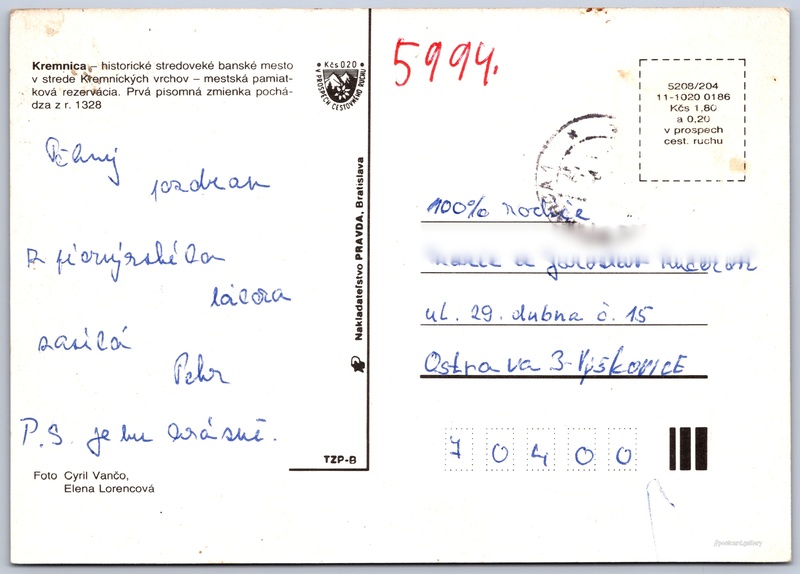 Kremnica – historické stredoveké banské mesto
v strede Kremnických vrchov – mestská pamiat-
ková rezervácia. Prvá pisomná zmienka pochá-
dza z r. 1328
Kčs 0,20
V PROSPECH CESTOVNÉHO RUCHU
Pěkný
pozdrav
z pionýrského
tábora
zasílá
Petr
P.S. je tu krásně.
Foto Cyril Vančo,
Elena Lorencová
Nakladateľstvo PRAVDA, Bratislava
TZP-B
5994.
5208/204
11-1020 0186
Kčs 1,80
a 0,20
v prospech
cest. ruchu
100% rodiče
a Jaroslav
ul. 29. dubna č. 15
Ostrava 3-Výškovice
70400